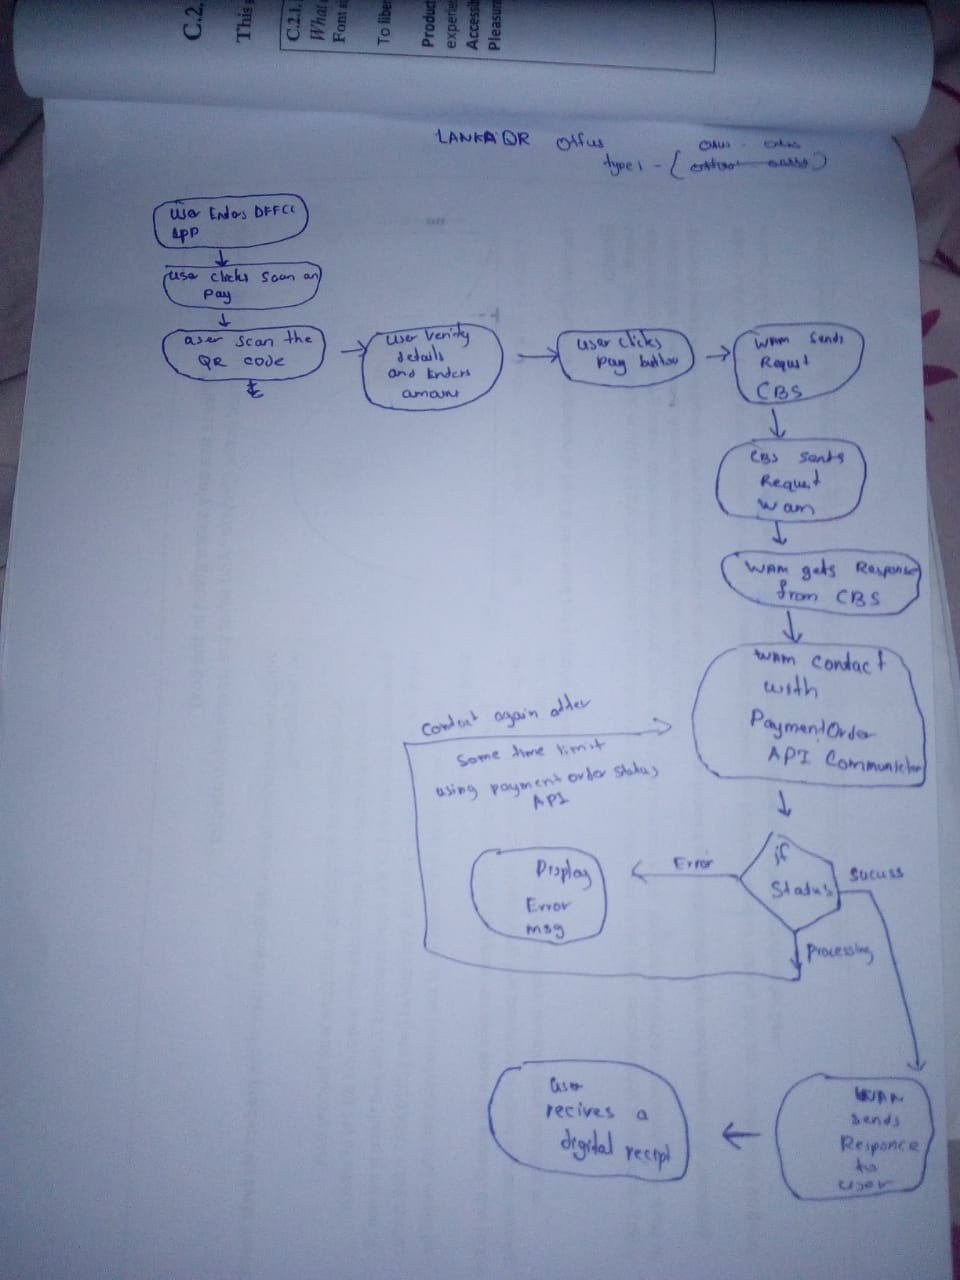 C.2.
This
C.2.1.
What
Font si
To liber
Product
experie
Accessib
Pleasur
LANKAQR Offus
type 1 - (
User Enters DFFCC
App
User clicks Scan an
Pay
user scan the
QR code
User Verify
details
and Enters
amount
User clicks
Pay button
WAM Sends
Request
CBS
CBS sents
Request
Wam
WAM gets Response
from CBS
WAM contact
with
PaymentOrder
API Communicter
Contact again after
Some time limit
using payment order status
API
if
Status
Error
Sucuss
Processing
Display
Error
msg
WAM
Sends
Responce
to
user
User
recives a
digital recipt